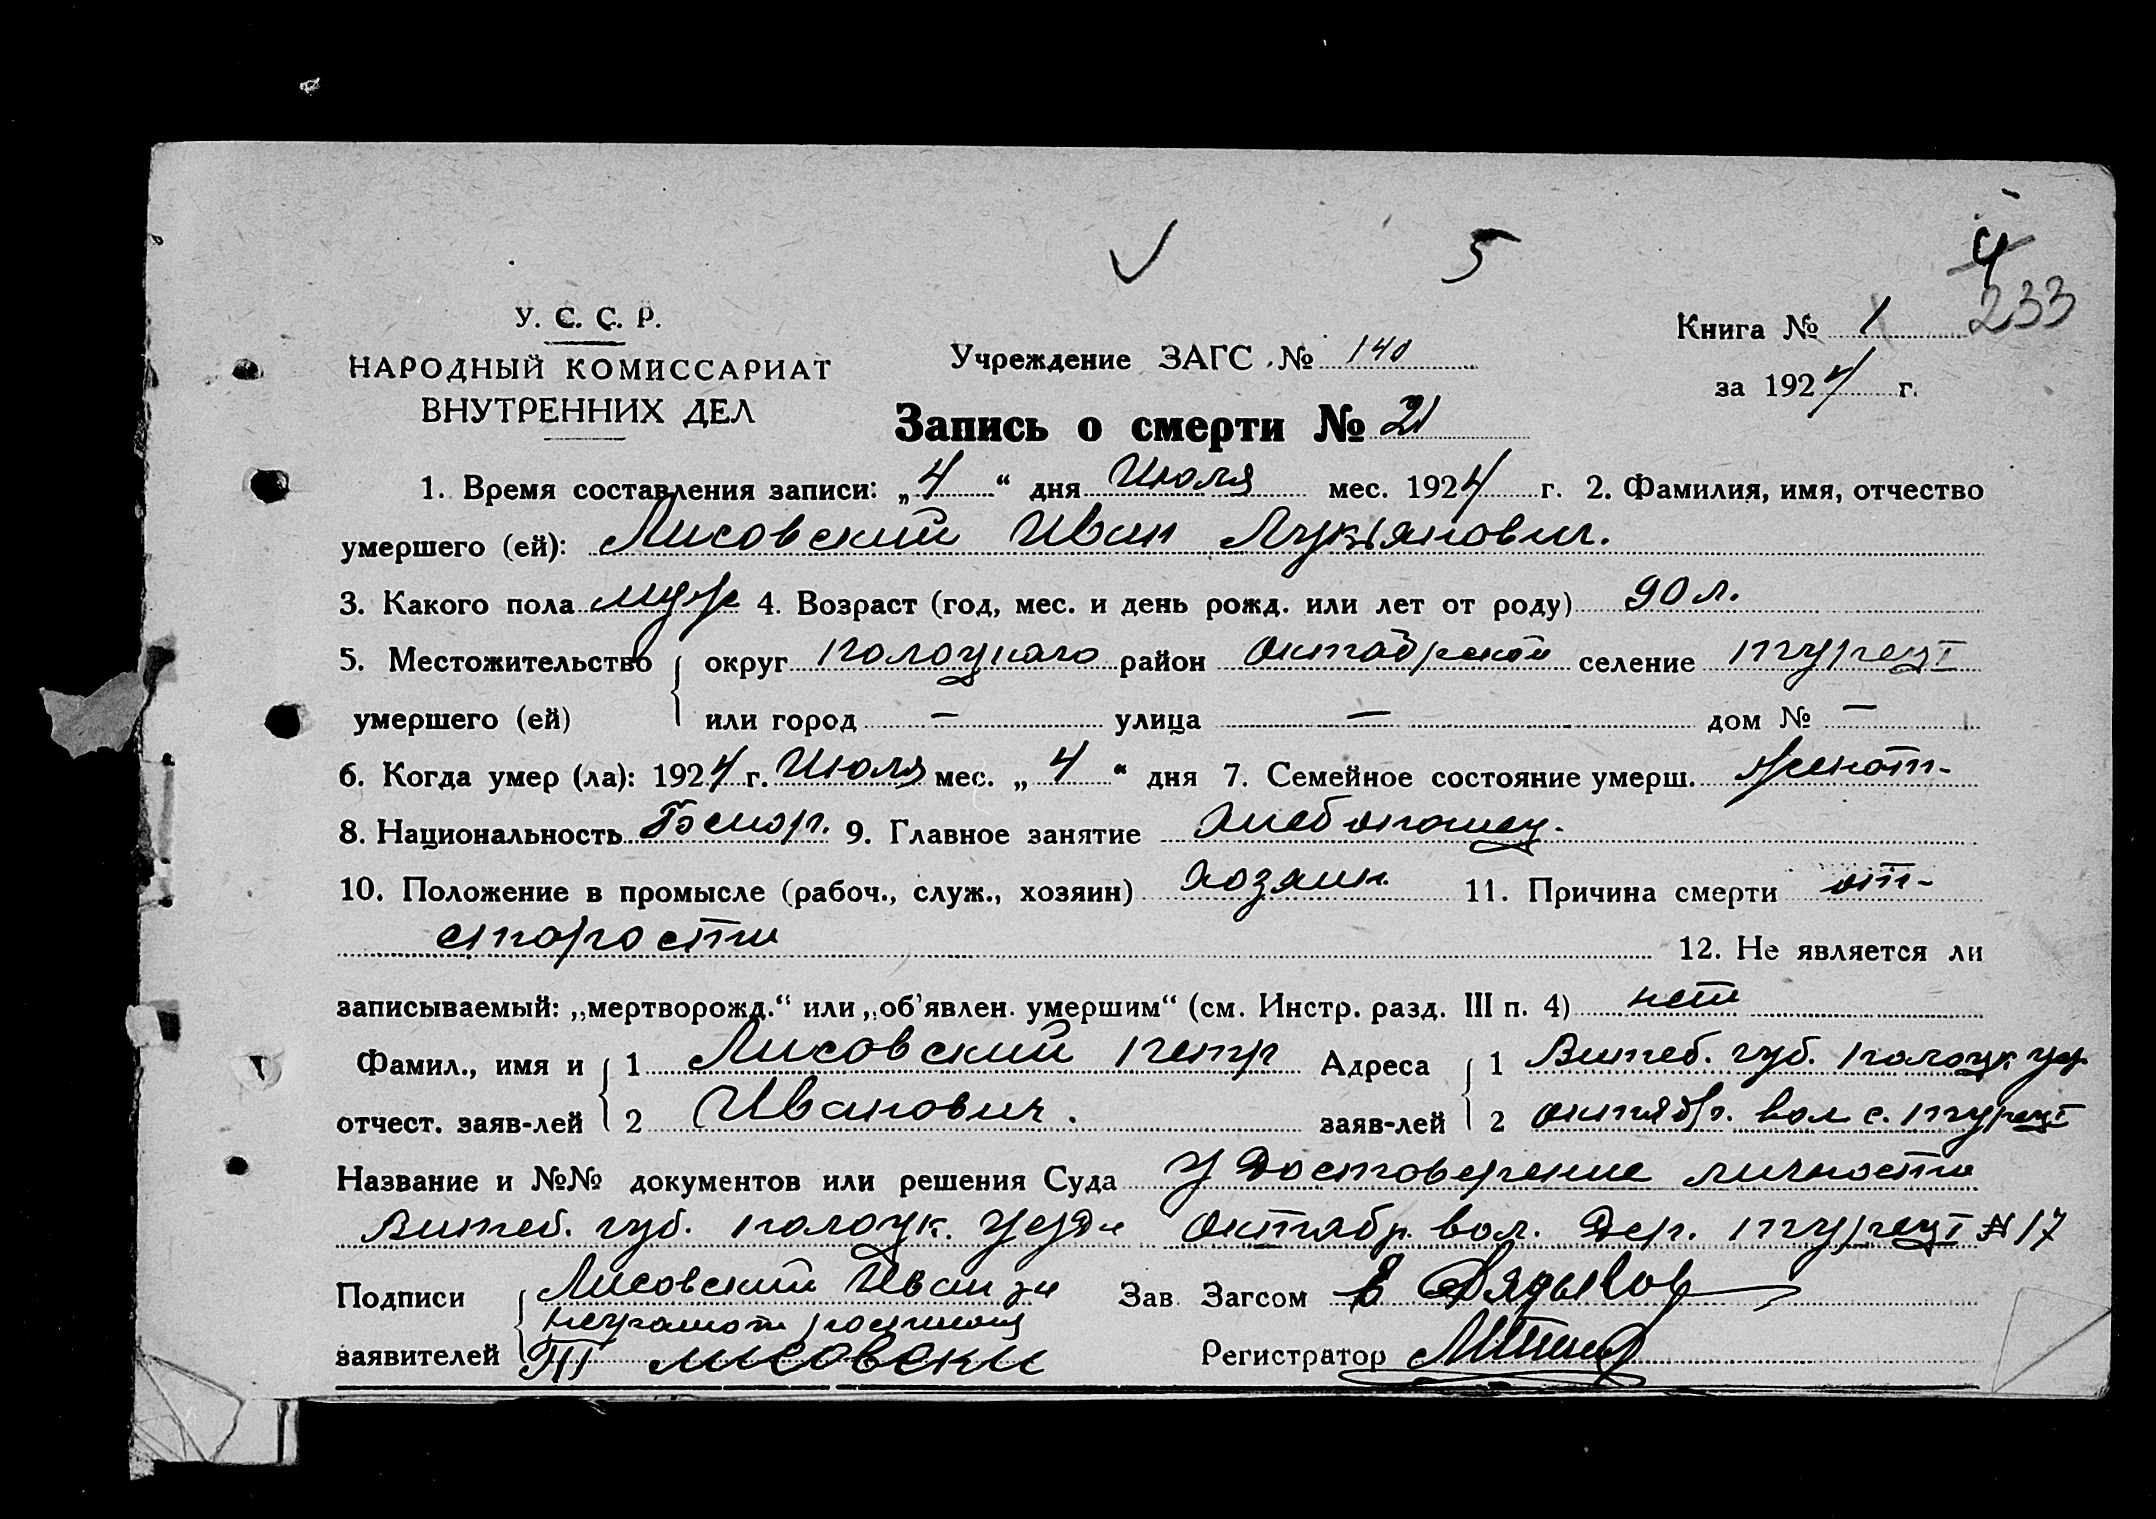 5
4
233
У. С. С. Р.
НАРОДНЫЙ КОМИССАРИАТ
ВНУТРЕННИХ ДЕЛ
Учреждение ЗАГС № 140
Книга № 1
за 1924 г.
Запись о смерти № 21
1. Время составления записи: „4“ дня Июля мес. 1924 г. 2. Фамилия, имя, отчество
умершего (ей): Лисовский Иван Лукьянович.
3. Какого пола муж 4. Возраст (год, мес. и день рожд. или лет от роду) 90 л.
5. Местожительство округ Полоцкого район Октябрьской селение Турец
умершего (ей) или город — улица — дом № —
6. Когда умер (ла): 1924 г. Июля мес. „4“ дня 7. Семейное состояние умерш. женат-
8. Национальность Белор. 9. Главное занятие Хлебопашец.
10. Положение в промысле (рабоч., служ., хозяин) хозяин 11. Причина смерти от-
старости 12. Не является ли
записываемый: „мертворожд.“ или „об'явлен. умершим“ (см. Инстр. разд. III п. 4) нет
Фамил., имя и 1 Лисовский Петр Адреса 1 Витеб. губ. Полоцк. уез.
отчест. заяв-лей 2 Иванович. заяв-лей 2 Октябр. вол с. Турец
Название и №№ документов или решения Суда Удостоверение личности
Витеб. губ. Полоцк. уезда Октябр. вол. дер. Турец № 17
Подписи Лисовский Иван за Зав. Загсом
неграмотн росписався
заявителей Лисовски Регистратор